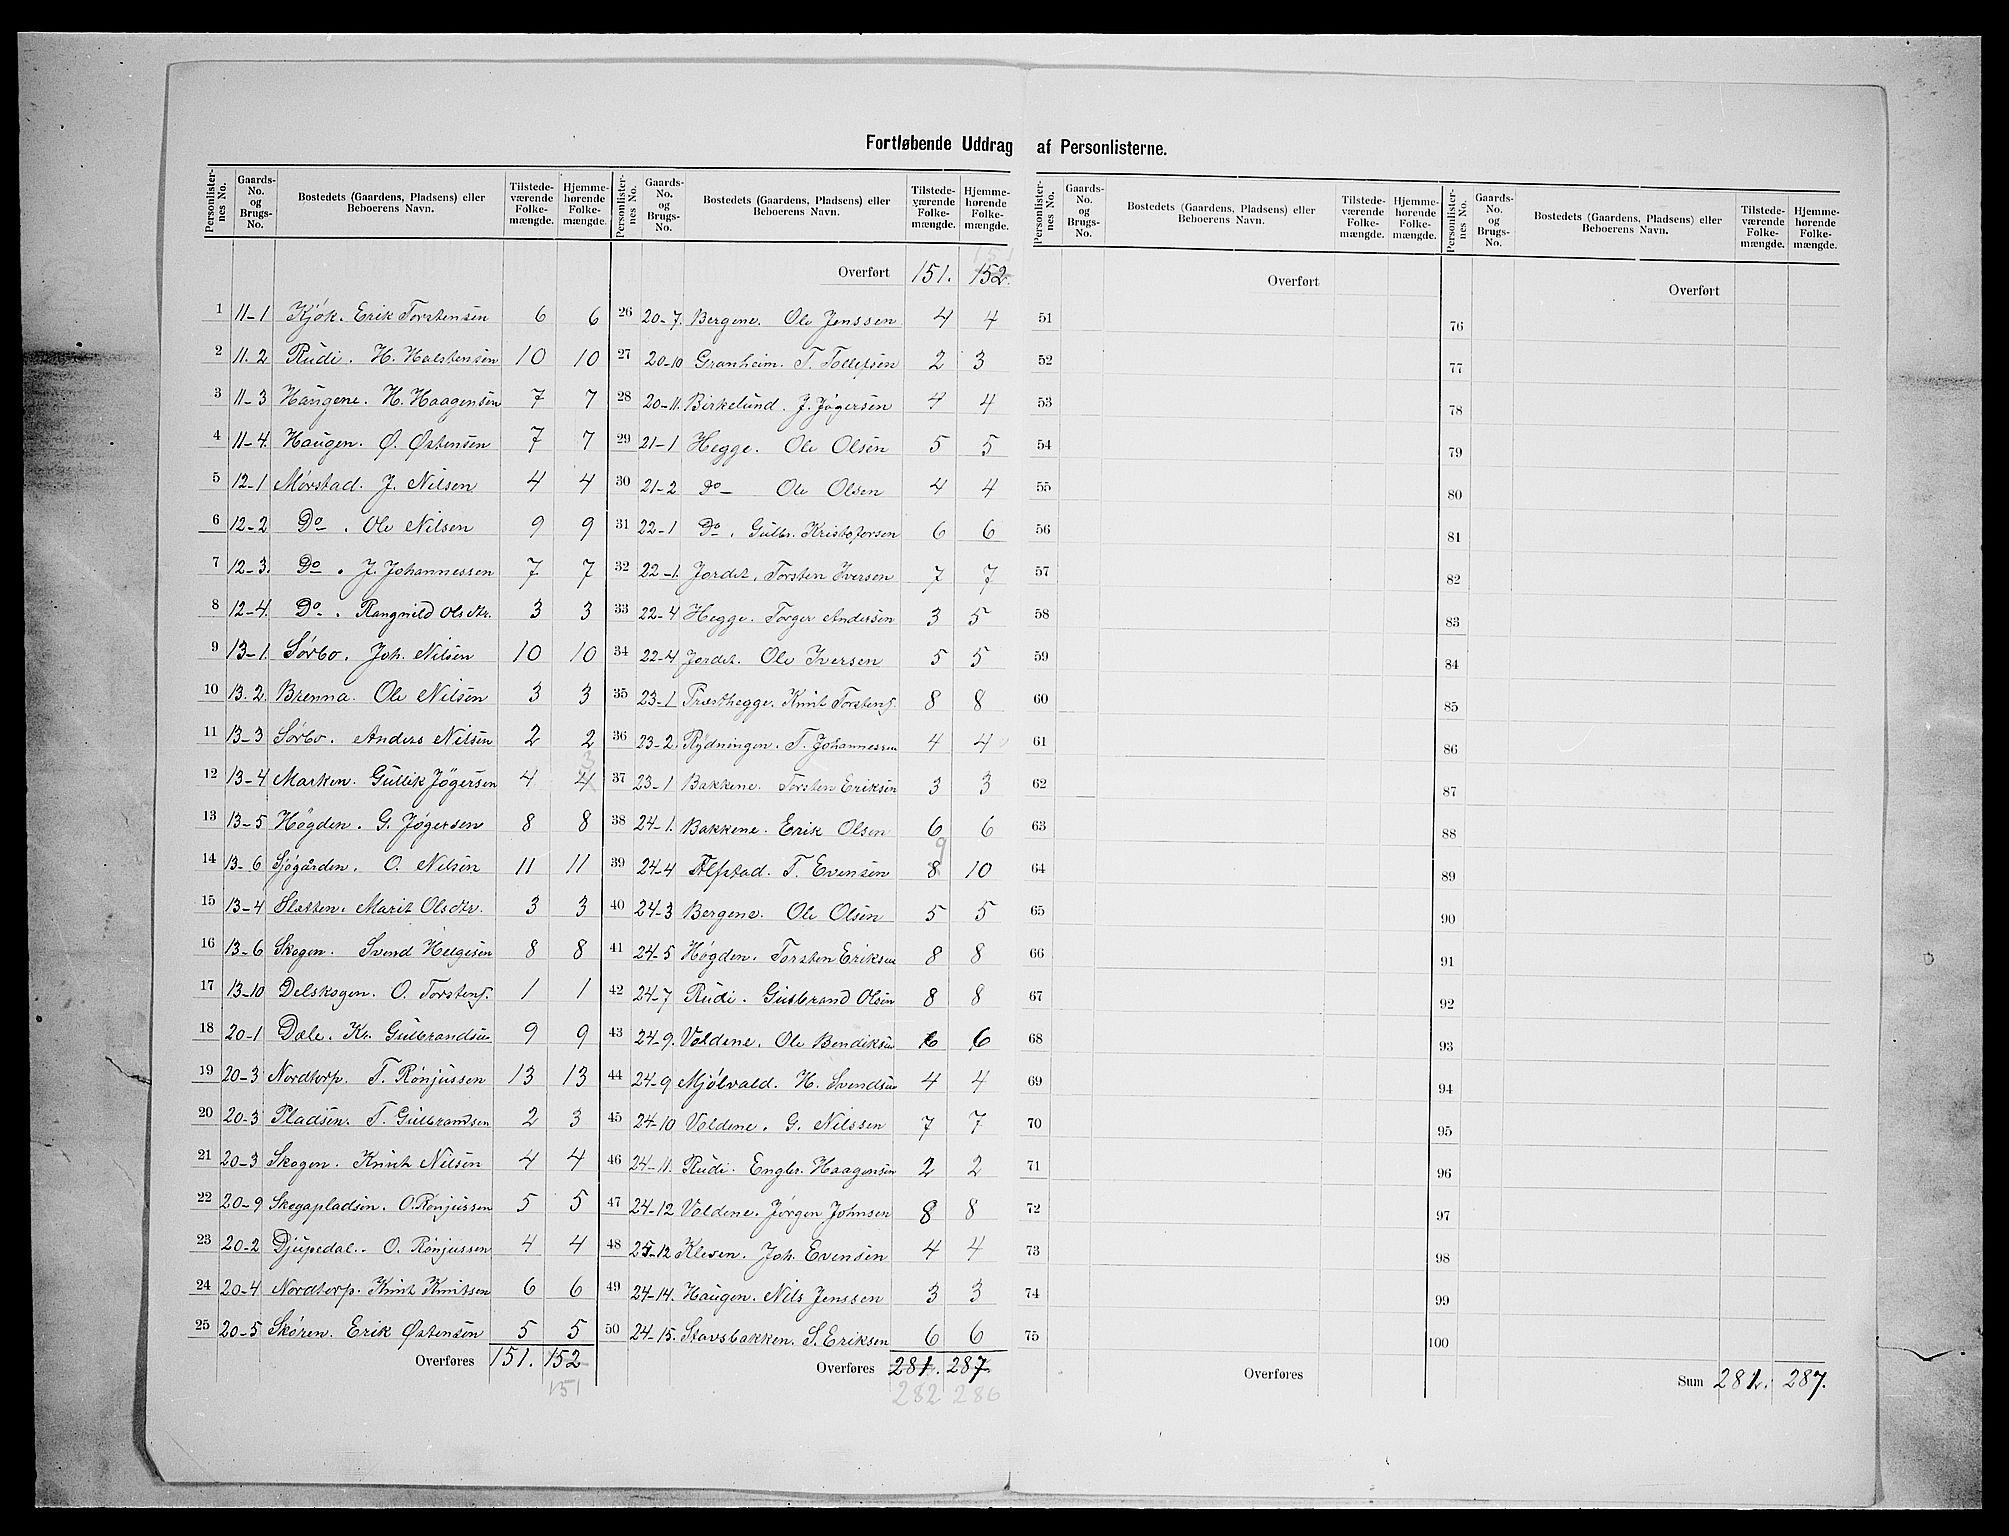 Fortløbende Uddrag af Personlisterne.
Personlisternes No. Gaards-No. og Brugs-No. Bostedets (Gaardens, Pladsens) eller Beboerens Navn. Tilstedeværende Folkemængde. Hjemmehørende Folkemængde.
1 11-1 Kjök. Erik Torstensen 6 6
2 11.2 Rudi. H. Halstensen 10 10
3 11-3 Haugene. H. Haagensen 7 7
4 11-4. Haugen. Ø. Østensen 7 7
5 12-1 Mørstad. J. Nilsen 4 4
6 12-2 Do. Ole Nilsen 9 9
7 12-3. Do. J. Johannessen 7 7
8 12-4. Do. Rangnild Olsdtr. 3 3
9 13-1. Sørbo. Joh. Nilsen 10 10
10 13.2. Brenna. Ole Nilsen 3 3
11 13-3 Sørbo. Anders Nilsen 2 2
12 13-4 Marken. Gullik Jögersen 4 4 3
13 13-5 Høgden. G. Jøgersen 8 8
14 13-6 Sjøgården. O. Nilsen 11 11
15 13-4 Sletten. Marit Olsdtr. 3 3
16 13-6 Skogen. Svend Helgesen 8 8
17 13-10 Delskogen. O. Torstens. 1 1
18 20-1 Dæle. Kr. Gulbrandsen 9 9
19 20-3 Nordtorp. T. Rønjussen 13 13
20 20-3 Pladsen. T. Gulbrandsen 2 3
21 20-3 Skogen. Knut Nilsen 4 4
22 20-9 Skogapladsen. O. Rønjussen 5 5
23 20-2 Djupedal. O. Rønjussen 4 4
24 20-4 Nordtorp. Knut Knutsen 6 6
25 20-5 Skøren. Erik Østensen 5 5
Overføres 151. 152
151
Personlisternes No. Gaards-No. og Brugs-No. Bostedets (Gaardens, Pladsens) eller Beboerens Navn. Tilstedeværende Folkemængde. Hjemmehørende Folkemængde.
151
Overført 151. 152.
26 20-7. Bergene. Ole Jenssen 4 4
27 20-10 Granheim. T. Tollefsen 2 3
28 20-11. Birkelund. J. Jøgersen 4 4
29 21-1 Hegge. Ole Olsen 5 5
30 21-2 Do Ole Olsen 4 4
31 22-1 Do. Gulbr. Kristofersen 6 6
32 22-1. Jordet. Torsten Iversen 7 7
33 22-4 Hegge. Torger Andersen 3 5
34 22-4 Jordet. Ole Iversen 5 5
35 23-1 Præsthegge. Knut Torstens. 8 8
36 23-2. Rydningen. T. Johannessen 4 4
37 23-1 Bakkene. Torsten Eriksen 3 3
38 24-1. Bakkene. Erik Olsen 6 6
39 24-4 Alfstad. T. Evensen 8 9 10
40 24-3 Bergene. Ole Olsen 5 5
41 24-5 Høgden. Torsten Eriksen 8 8
42 24-7 Rudi. Gulbrand Olsen 8 8
43 24-9. Voldene. Ole Bendiksen 6 6
44 24-9 Mjölvald. H. Svendsen 4 4
45 24-10 Voldene. G. Nilssen 7 7
46 24-11. Rudi. Engbr. Haagensen 2 2
47 24-12 Voldene. Jørgen Johnsen 8 8
48 25-12 Kleven. Joh. Evensen 4 4
49 24-14. Haugen. Nils Jenssen 3 3
50 24-15. Stavsbakken. S. Eriksen 6 6
Overføres 281. 287.
282 286
Personlisternes No. Gaards-No. og Brugs-No. Bostedets (Gaardens, Pladsens) eller Beboerens Navn. Tilstedeværende Folkemængde. Hjemmehørende Folkemængde.
Overført
51
52
53
54
55
56
57
58
59
60
61
62
63
64
65
66
67
68
69
70
71
72
73
74
75
Overføres
Personlisternes No. Gaards-No. og Brugs-No. Bostedets (Gaardens, Pladsens) eller Beboerens Navn. Tilstedeværende Folkemængde. Hjemmehørende Folkemængde.
Overført
76
77
78
79
80
81
82
83
84
85
86
87
88
89
90
91
92
93
94
95
96
97
98
99
100
Sum 281. 287.